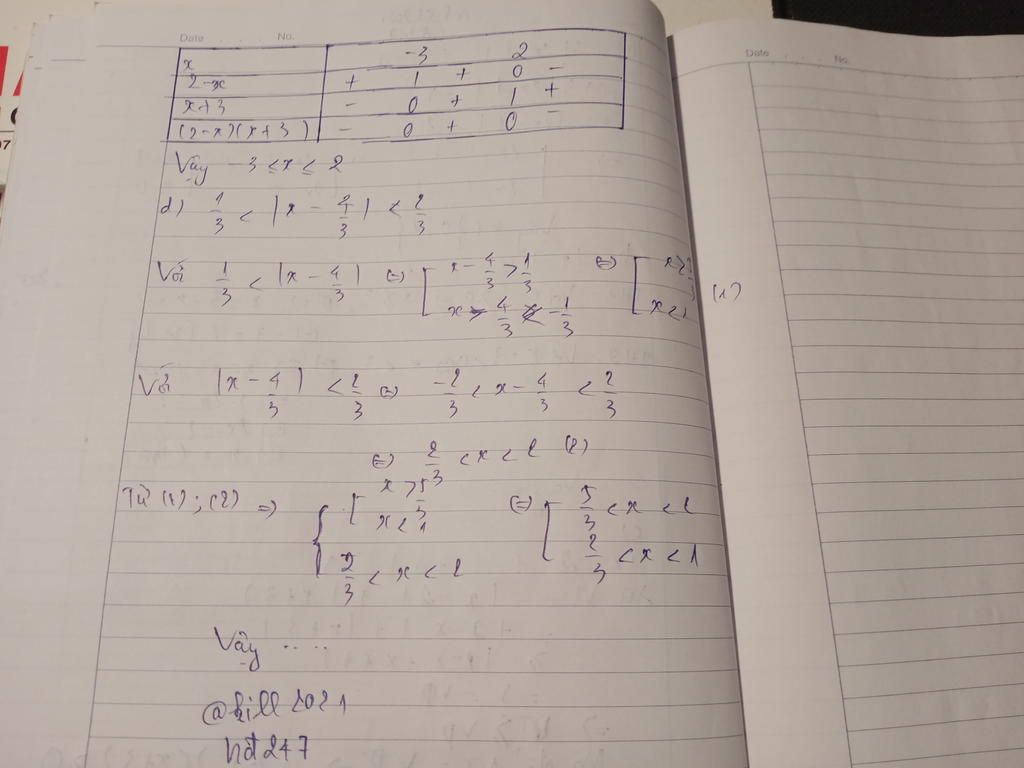 Date No.
x -3 2
2-x + | + 0 -
x+3 - 0 + | +
(2-x)(x+3) - 0 + 0 -
Vậy -3 ≤ x ≤ 2
d) 1/3 < |x - 4/3| < 2/3
Với 1/3 < |x - 4/3| (=) [ x - 4/3 > 1/3 (=) [ x > 5/3
x - 4/3 < -1/3 x < 1 (1)
Với |x - 4/3| < 2/3 (=) -2/3 < x - 4/3 < 2/3
(=) 2/3 < x < 2 (2)
Từ (1) ; (2) => { [ x > 5/3 (=) [ 5/3 < x < 2
x < 1
2/3 < x < 2 2/3 < x < 1
Vậy ....
@kill2021
hđ247
Date No.